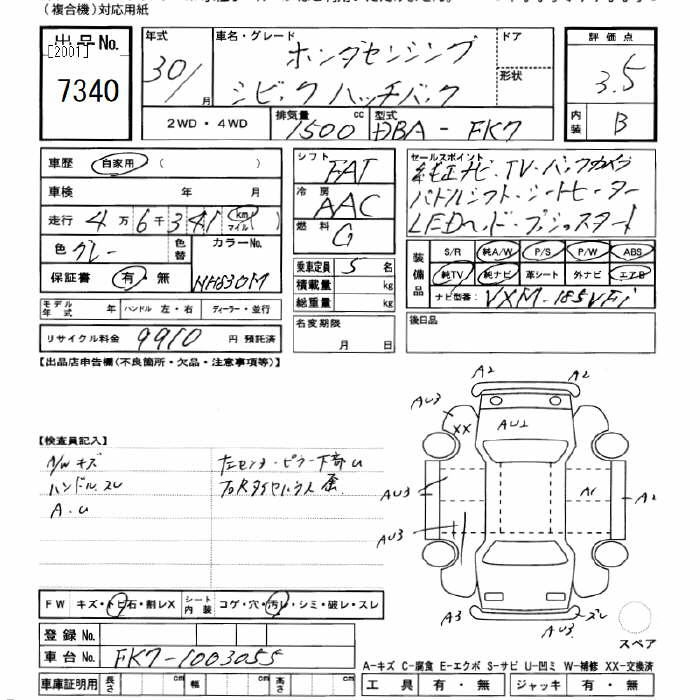 (複合機)対応用紙
出品No.
[2001]
7340
年式
30/
月
車名・グレード
ホンダセンシング
シビック ハッチバック
ドア
形状
2WD・4WD
排気量
1500 cc
型式
DBA-FK7
評価点
3.5
内装
B
車歴
自家用 ( )
車検 年 月
走行 4万 6千 341 km マイル
色 グレー
色替
カラーNo.
NH830M
保証書 有・無
モデル年式 年 ハンドル 左・右 ディーラー・並行
リサイクル料金 9910 円 預託済
シフト
FAT
冷房
AAC
燃料
G
乗車定員 5 名
積載量 kg
総重量 kg
名変期限
月 日
セールスポイント
純正ナビ・TV・バックカメラ
パドルシフト・シートヒーター
LEDヘッド・プッシュスタート
装備品
S/R 純A/W P/S P/W ABS
純TV 純ナビ 革シート 外ナビ エアB
ナビ型番: VXM-185VFi
後日品
【出品店申告欄(不良箇所・欠品・注意事項等)】
【検査員記入】
A/W キズ
ハンドル スレ
A.U
左センターピラー下部 U
A2
A2
AU3
XX
AU2
AU3
A1
A2
AU3
A3
AU3
スレ
スペア
FW キズ・トビ石・割レX
シート内装 コゲ・穴・汚レ・シミ・破レ・スレ
登録No.
車台No. FK7-1003055
車庫証明用 長さ cm 幅 cm 高さ cm
A-キズ C-腐食 E-エクボ S-サビ U-凹ミ W-補修 XX-交換済
工具 有・無 ジャッキ 有・無